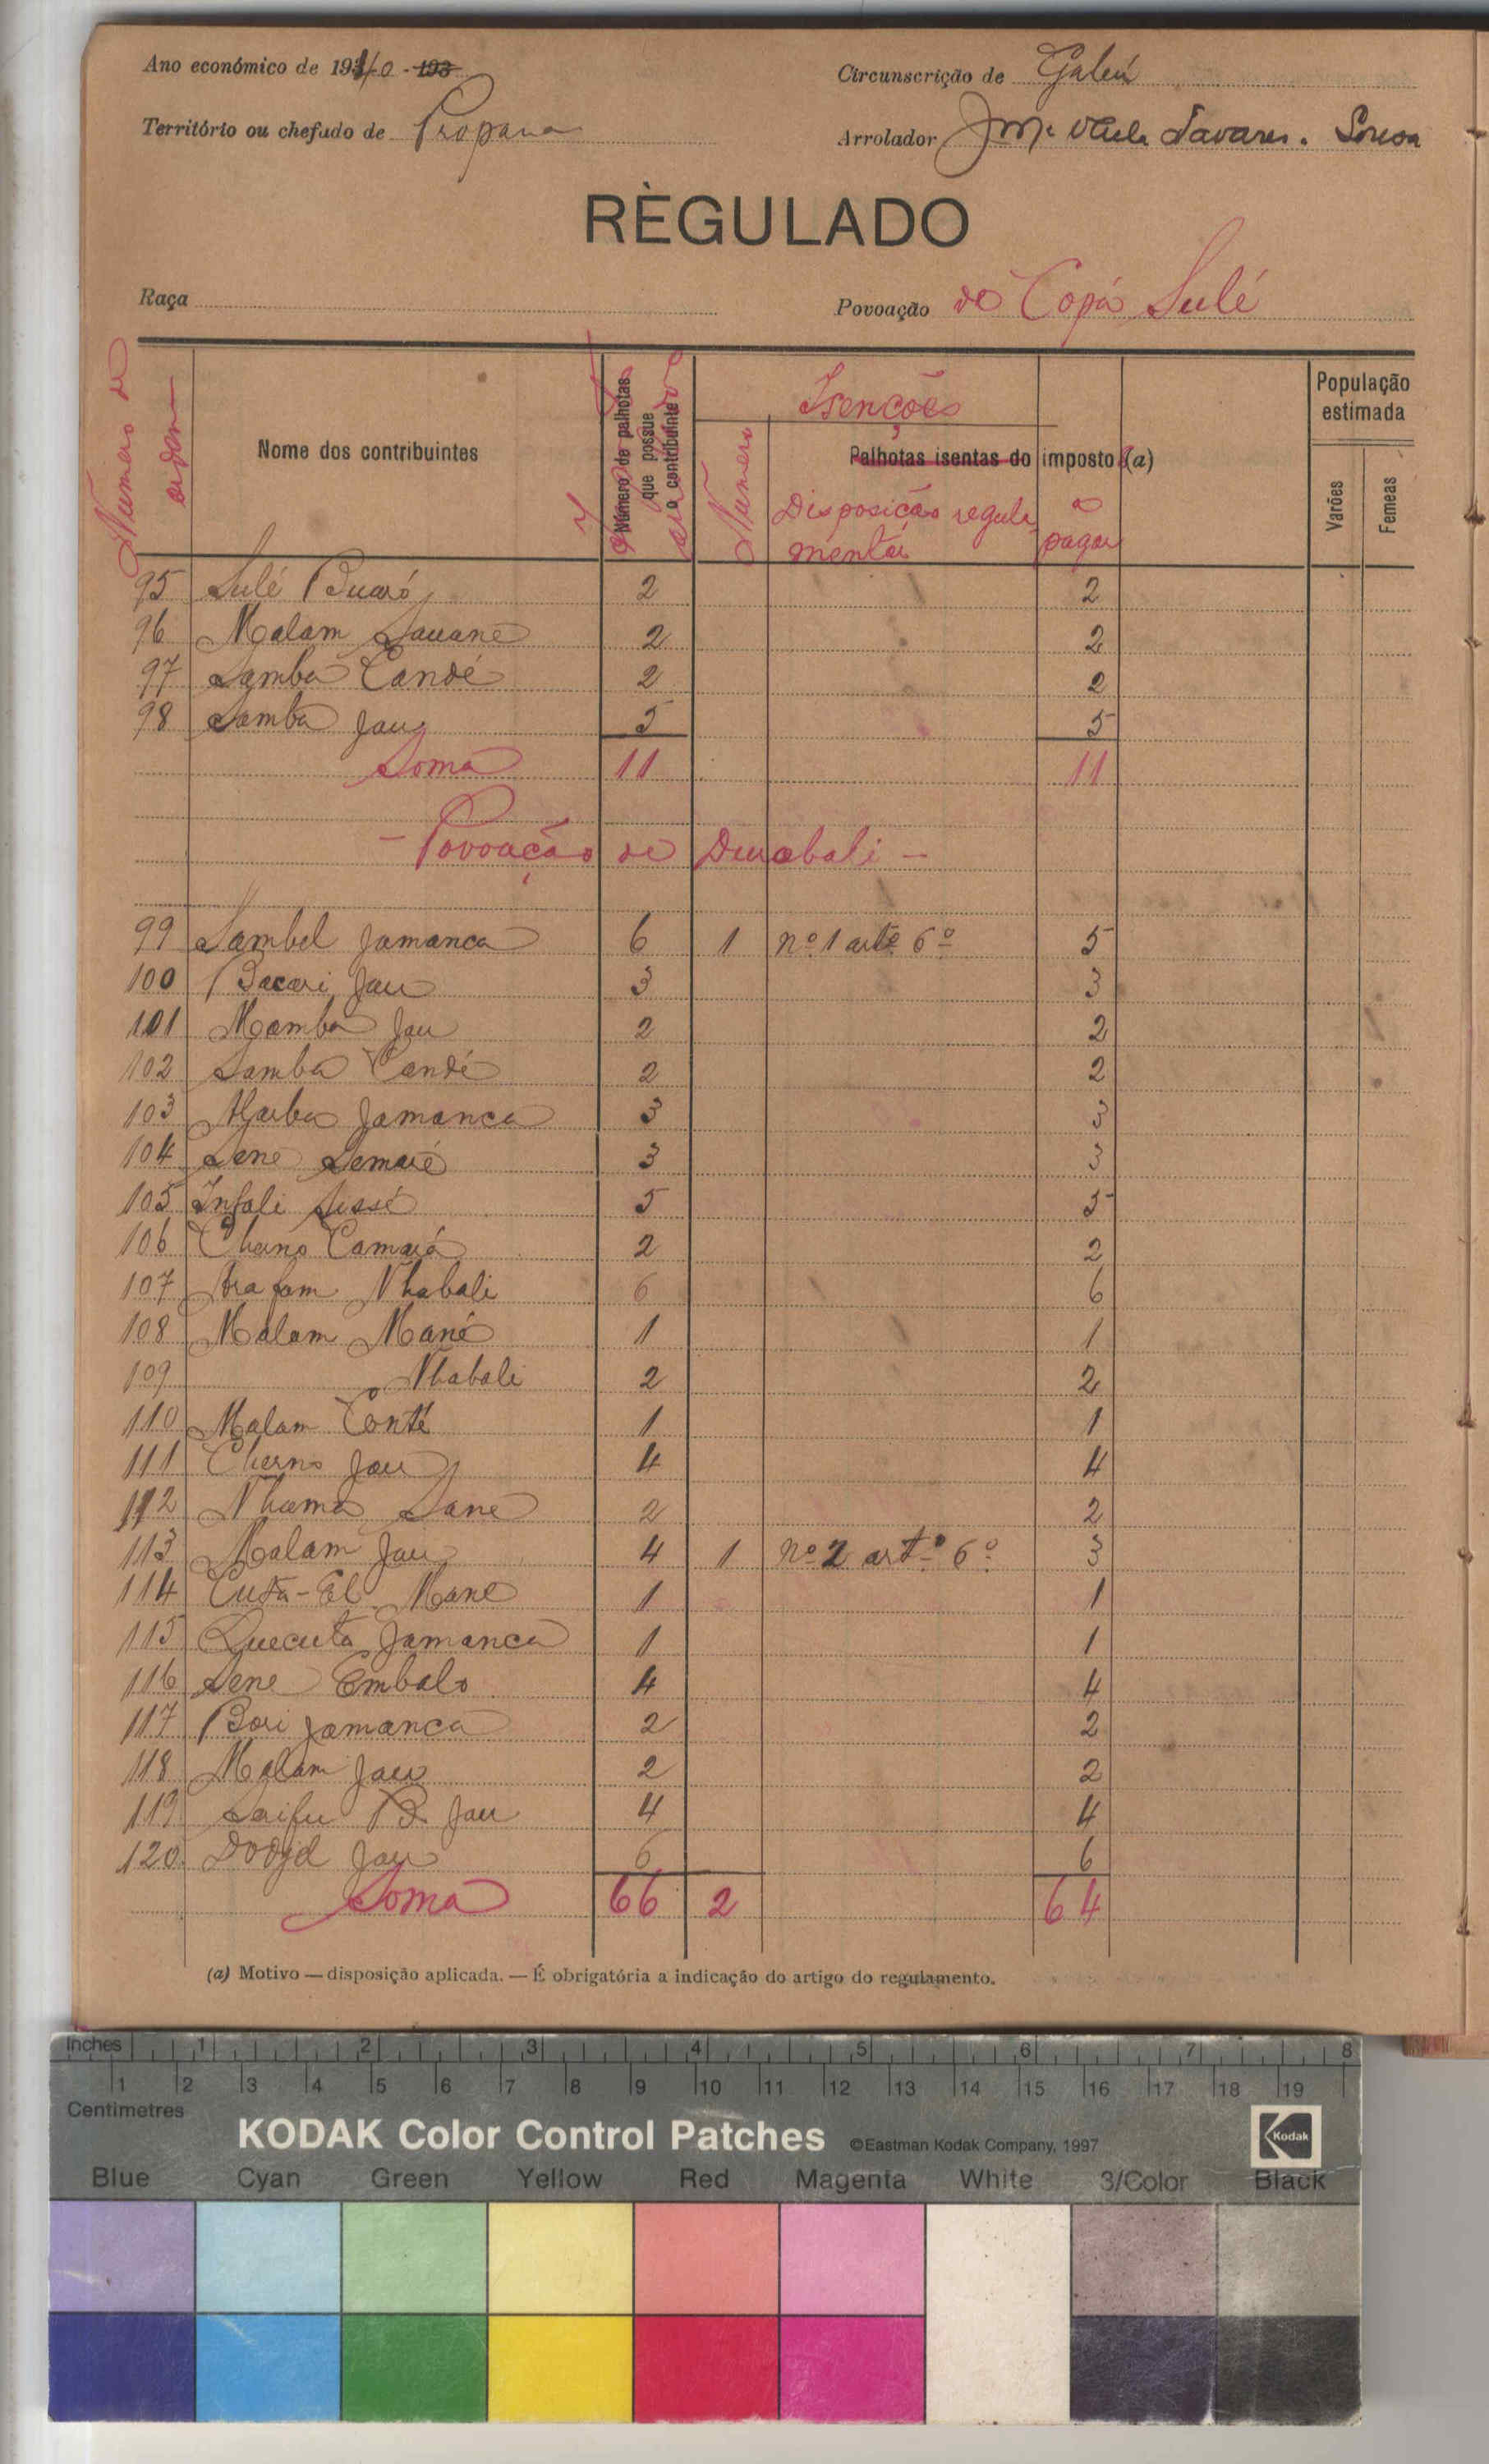 Ano económico de 1940 - 193
Circunscrição de Gabú
Território ou chefado de Propana
Arrolador Tavares. Sousa
RÈGULADO
Raça
Povoação de Copá Sulé
Número de ordem
Nome dos contribuintes
Número de palhotas que possue o contribuinte
Isenções
Número
Palhotas isentas do imposto (a)
Disposição regulamentar
a pagar
População estimada
Varões
Femeas
95 Sulé Buaró 2 2
96 Malam Sauane 2 2
97 Samba Candé 2 2
98 Samba Jau 5 5
Soma 11 11
- Povoação de Durabali -
99 Sambel Jamanca 6 1 nº 1 artº 6º 5
100 Bacari Jau 3 3
101 Mamba Jau 2 2
102 Samba Candé 2 2
103 Jamanca 3 3
104 Sene 3 3
105 Infali Sissé 5 5
106 Cherno Camará 2 2
107 Arafam Nhabali 6 6
108 Malam Mané 1 1
109 Nhabali 2 2
110 Malam Conté 1 1
111 Cherno Jau 4 4
112 Nhama Sane 2 2
113 Malam Jau 4 1 nº 2 artº 6º 3
114 Mane 1 1
115 Quecuta Jamanca 1 1
116 Sene Embalo 4 4
117 Bori Jamanca 2 2
118 Malam Jau 2 2
119 Saifu B. Jau 4 4
120 Jau 6 6
Soma 66 2 64
(a) Motivo — disposição aplicada. — É obrigatória a indicação do artigo do regulamento.
Inches 1 2 3 4 5 6 7 8
1 2 3 4 5 6 7 8 9 10 11 12 13 14 15 16 17 18 19
Centimetres
KODAK Color Control Patches ©Eastman Kodak Company, 1997 Kodak
Blue Cyan Green Yellow Red Magenta White 3/Color Black